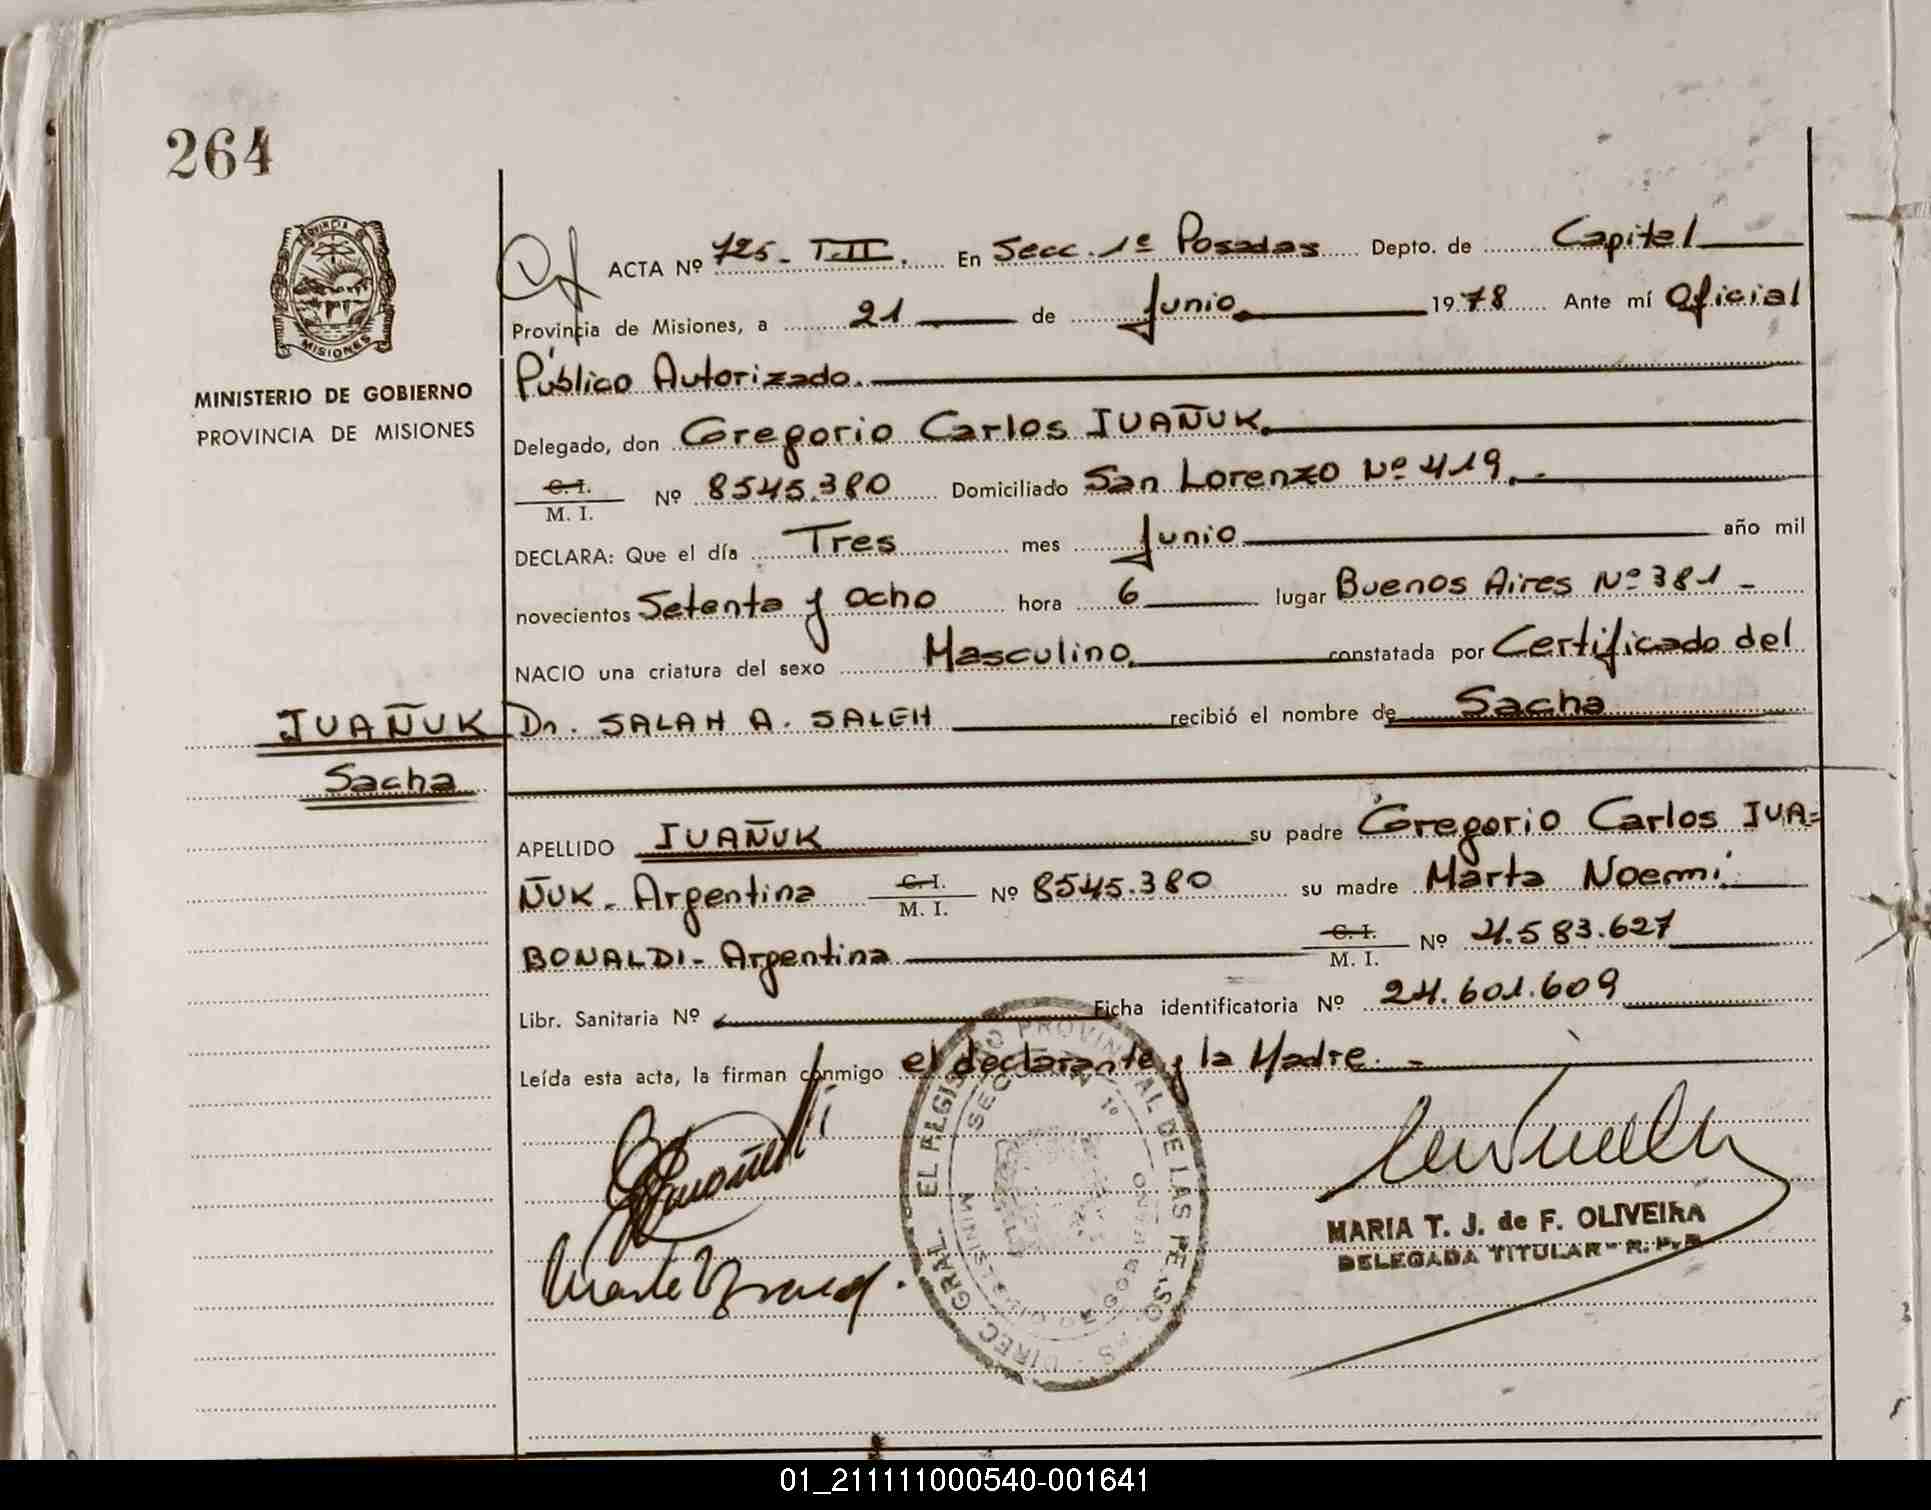 264
PROVINCIA DE
MISIONES
MINISTERIO DE GOBIERNO
PROVINCIA DE MISIONES
ACTA Nº 725 - T.II. En Secc. 1ª Posadas Depto. de Capital
Provincia de Misiones, a 21 de Junio 1978 Ante mí Oficial
Público Autorizado.
Delegado, don Gregorio Carlos IUAÑUK.
C. I.
M. I. Nº 8545.380 Domiciliado San Lorenzo Nº 419.-
DECLARA: Que el día Tres mes Junio año mil
novecientos Setenta y Ocho hora 6 lugar Buenos Aires Nº 381 -
NACIO una criatura del sexo Masculino. constatada por Certificado del
Dn. SALAH A. SALEH recibió el nombre de Sacha
IUAÑUK
Sacha
APELLIDO IUAÑUK su padre Gregorio Carlos IUA=
ÑUK - Argentina C. I. M. I. Nº 8545.380 su madre Marta Noemi
BONALDI - Argentina C. I. M. I. Nº 4.583.627
Libr. Sanitaria Nº Ficha identificatoria Nº 24.601.609
Leída esta acta, la firman conmigo el declarante y la Madre. -
DIREC. GRAL. EL REGISTRO PROVINCIAL DE LAS PERSONAS
SECCION 1º
MINISTERIO DE GOBIERNO
MARIA T. J. de F. OLIVEIRA
DELEGADA TITULAR - R. P. P.
01_211111000540-001641